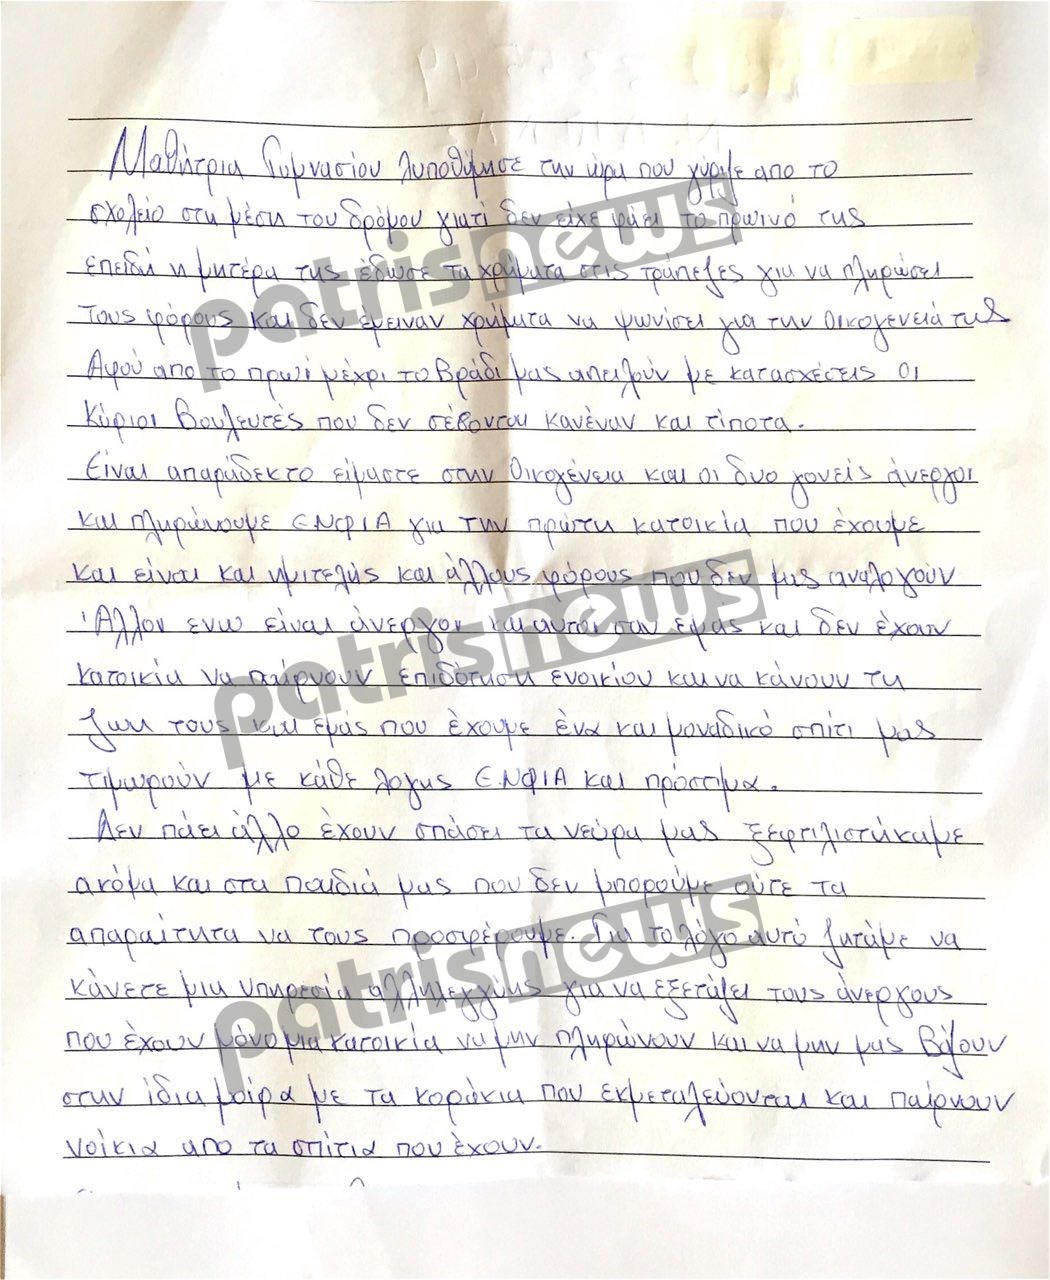 Μαθήτρια Γυμνασίου λυποθήμησε την ώρα που γύριζε απο το
σχολείο στη μέση του δρόμου γιατί δεν είχε φάει το πρωινό της
επειδή η μητέρα της έδωσε τα χρήματα στις τράπεζες για να πληρώσει
τους φόρους και δεν έμειναν χρήματα να ψωνίσει για την οικογένειά της
Αφού απο το πρωί μέχρι το βράδι μας απειλούν με κατασχέσεις οι
Κύριοι Βουλευτές που δεν σέβονται κανέναν και τίποτα.
Είναι απαράδεκτο είμαστε στην οικογένεια και οι δυο γονείς άνεργοι
και πληρώνουμε ΕΝΦΙΑ για την πρώτη κατοικία που έχουμε
και είναι και ημιτελής και άλλους φόρους που δεν μας αναλογούν
Άλλοι ενω είναι άνεργοι και αυτοί σαν εμάς και δεν έχουν
κατοικία να παίρνουν επιδότηση ενοικίου και να κάνουν τη
ζωη τους και εμάς που έχουμε ένα και μοναδικό σπίτι μας
τιμωρούν με κάθε λογης ΕΝΦΙΑ και πρόστιμα.
Δεν πάει άλλο έχουν σπάσει τα νεύρα μας ξεφτιλιστήκαμε
ακόμα και στα παιδιά μας που δεν μπορούμε ούτε τα
απαραίτητα να τους προσφέρουμε. Για το λόγο αυτό ζητάμε να
κάνετε μια υπηρεσία αλληλεγγύης για να εξετάζει τους άνεργους
που έχουν μόνο μια κατοικία να μην πληρώνουν και να μην μας βάζουν
στην ίδια μοίρα με τα κοράκια που εκμεταλεύονται και παίρνουν
νοίκια απο τα σπίτια που έχουν.
patrisnews
patrisnews
patrisnews